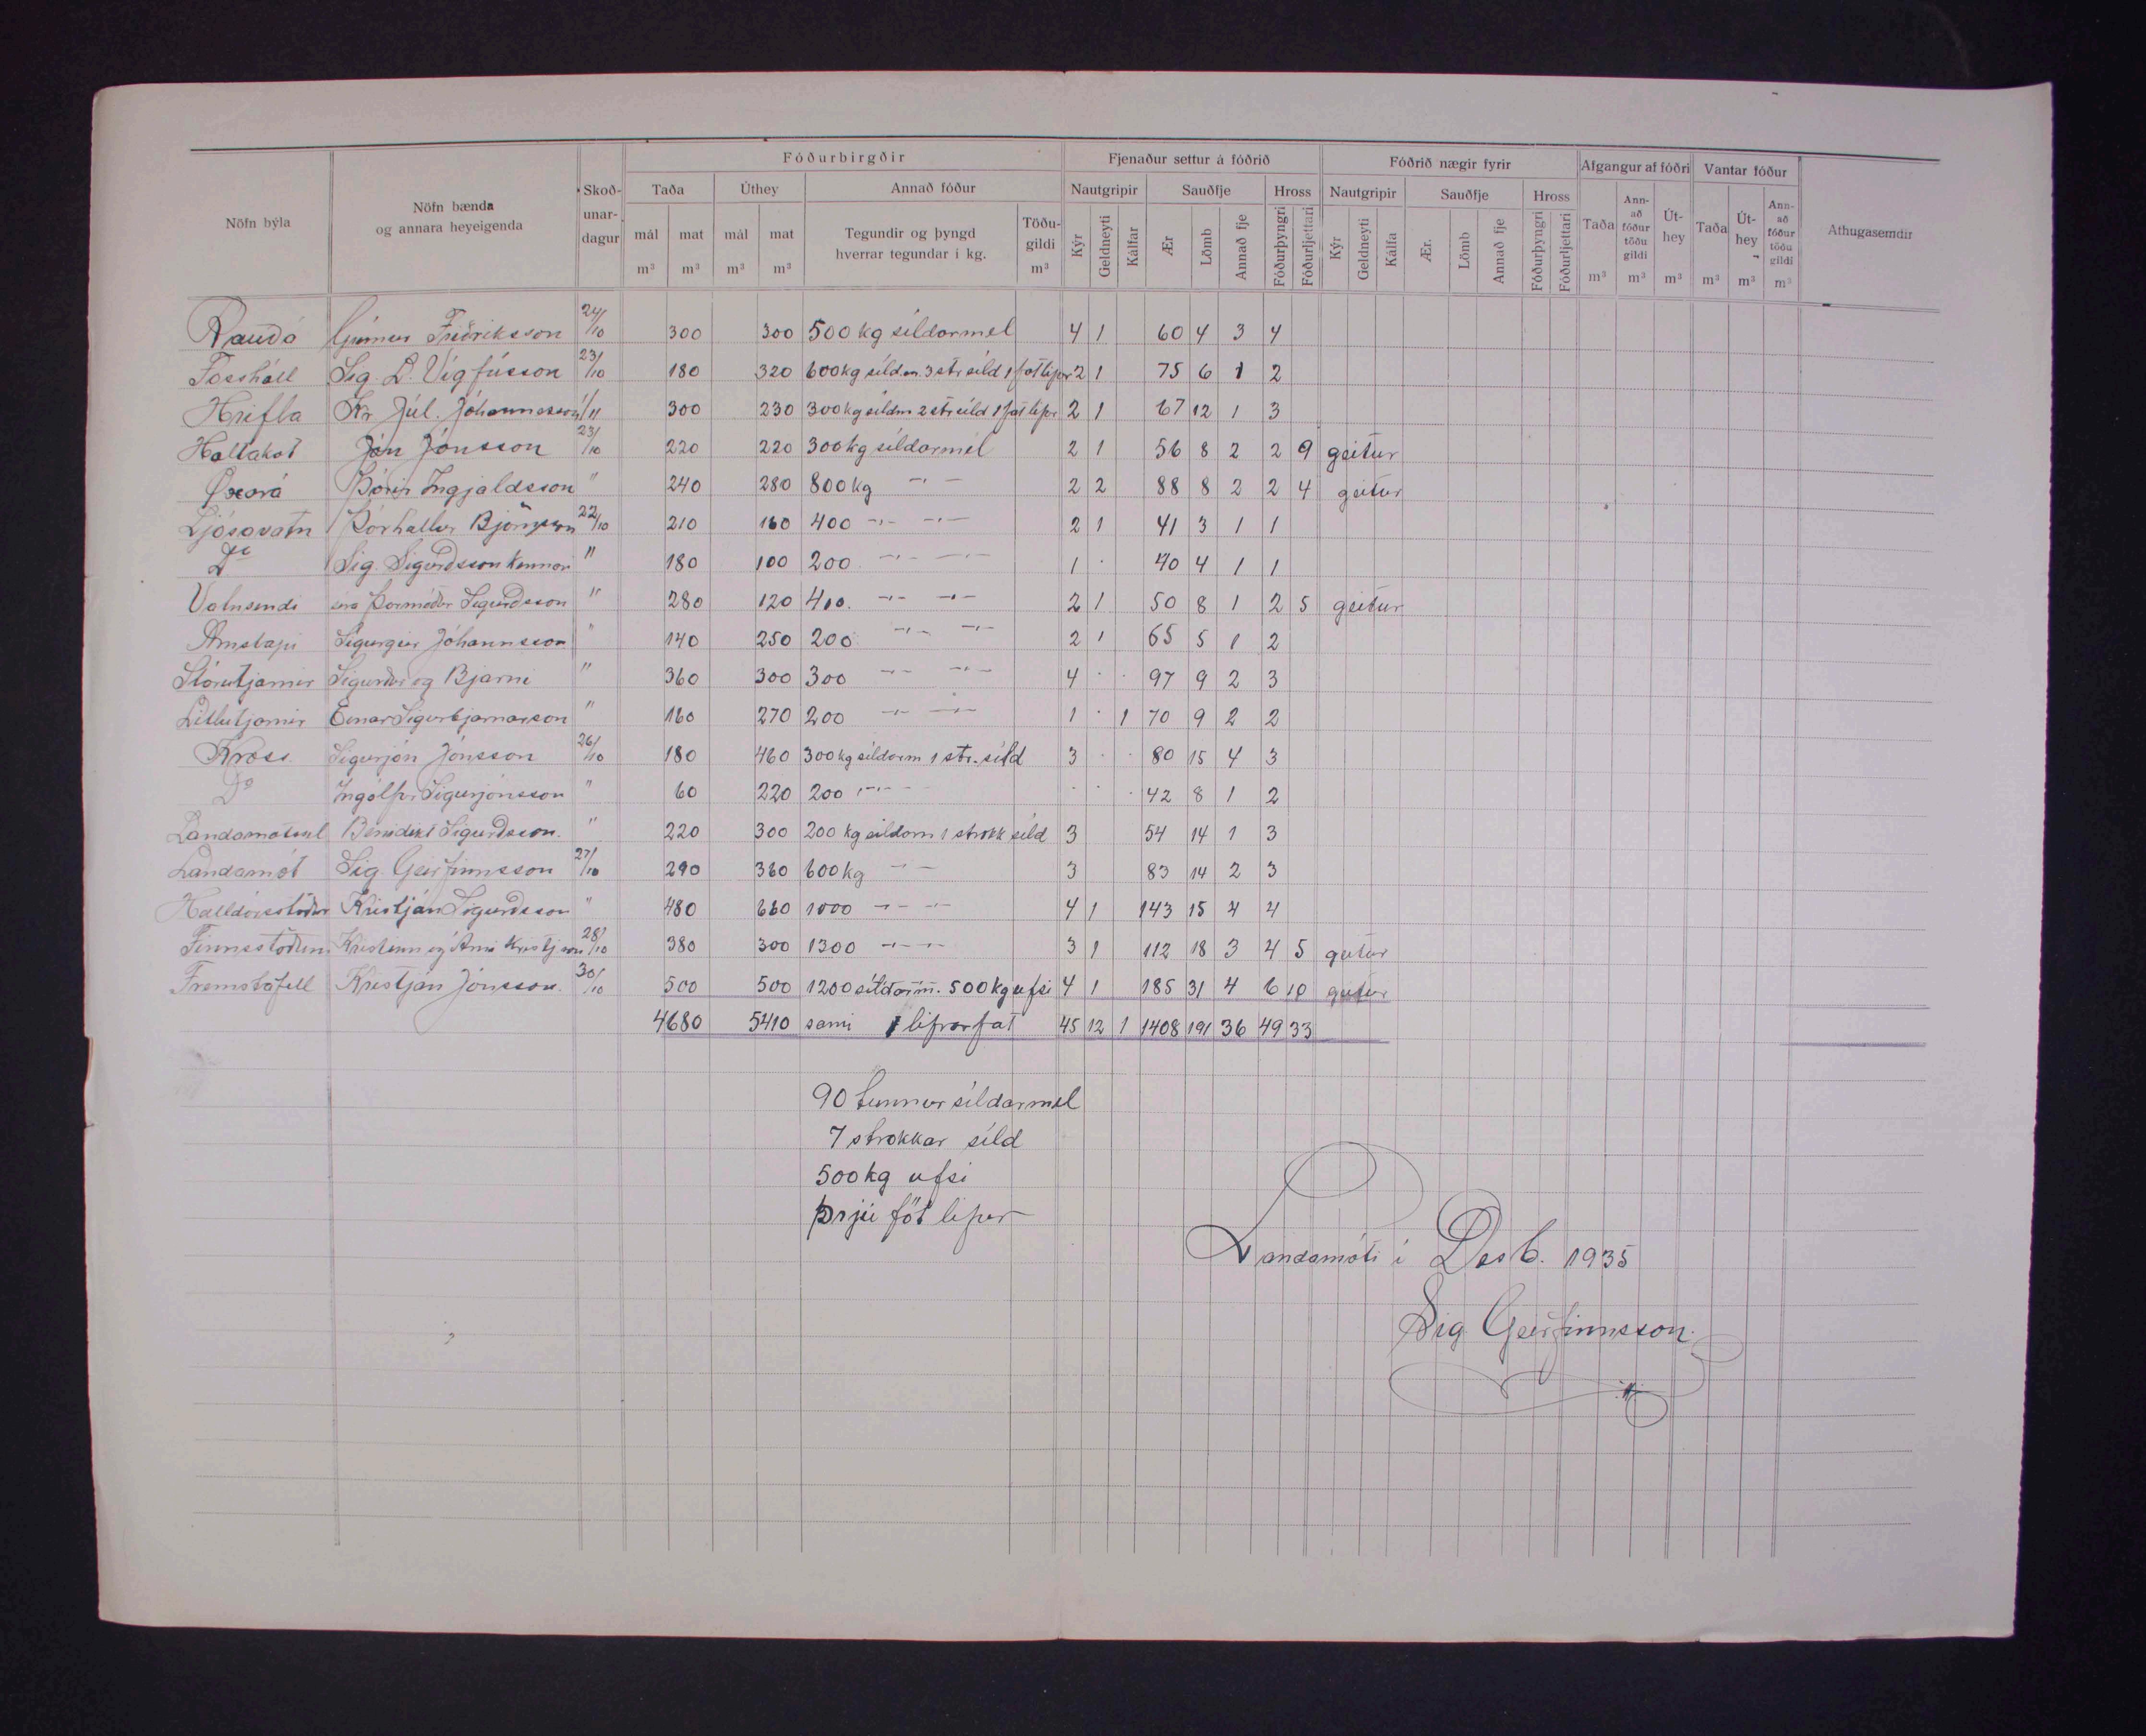 Fóðurbirgðir Fjenaður settur á fóðrið Fóðrið nægir fyrir Afgangur af fóðri Vantar fóður
Nöfn býla Nöfn bænda og annara heyeigenda Skoðunardagur Taða Úthey Annað fóður Nautgripir Sauðfje Hross Nautgripir Sauðfje Hross Taða Annað fóður töðu gildi Úthey Taða Úthey Annað fóður töðu gildi Athugasemdir
mál mat mál mat Tegundir og þyngd hverrar tegundar í kg. Töðugildi Kýr Geldneyti Kálfar Ær Lömb Annað fje Fóðurþyngri Fóðurljettari Kýr Geldneyti Kálfa Ær. Lömb Annað fje Fóðurþyngri Fóðurljettari
m³ m³ m³ m³ m³ m³ m³ m³ m³ m³ m³
Rauðá Grímur Friðriksson 24/10 300 300 500 kg síldarmel 4 1 60 4 3 4
Fosshóll Sig. L. Vigfússon 23/10 180 320 600 kg síld.m. 3 str síld 1 fat lifur 2 1 75 6 1 2
Hrifla Kr. Júl. Jóhannesson 1/11 300 230 300 kg síldm 2 str síld 1 fat lifur 2 1 67 12 1 3
Holtakot Jón Jónsson 23/10 220 220 300 kg síldarmél 2 1 56 8 2 2 9 geitur
Öxará Þórir Ingjaldsson " 240 280 800 kg -"- 2 2 88 8 2 2 4 geitur
Ljósavatn Þórhallur Björnsson 22/10 210 160 400 -"- -"- 2 1 41 3 1 1
Do Sig. Sigurðsson kennari " 180 100 200 -"- -"- 1 · 40 4 1 1
Vatnsendi séra Þormóður Sigurðsson " 280 120 400. -"- -"- 2 1 50 8 1 2 5 geitur
Arnstapi Sigurgeir Jóhannsson " 140 250 200 -"- -"- 2 1 65 5 1 2
Stórutjarnir Sigurður og Bjarni " 360 300 300 -"- -"- 4 · · 97 9 2 3
Litlutjarnir Einar Sigurbjarnarson " 160 270 200 -"- -"- 1 · 1 70 9 2 2
Kross. Sigurjón Jónsson 26/10 180 460 300 kg síldarm 1 str. síld 3 · · 80 15 4 3
Do Ingólfur Sigurjónsson " 60 220 200 -"- · · · 42 8 1 2
Landamótssel Benidikt Sigurðsson. " 220 300 200 kg síldarm 1 strokk síld 3 54 14 1 3
Landamót Sig Geirfinnsson 27/10 290 360 600 kg -"- 3 83 14 2 3
Halldórsstaðir Kristján Sigurðsson " 480 660 1000 -"- -"- 4 1 143 15 4 4
Finnsstöðum Kristinn og Árni Kristjssn 28/10 380 300 1300 -"- -"- 3 1 112 18 3 4 5 geitur
Fremstafell Kristján Jónsson. 30/10 500 500 1200 síldarm. 500 kg ufsi 4 1 185 31 4 6 10 geitur
4680 5410 sami 1 lifrarfat 45 12 1 1408 191 36 49 33
90 tunnur síldarmel
7 strokkar síld
500 kg ufsi
þrjú föt lifur
Landamóti í Desb. 1935
Sig Geirfinnsson.